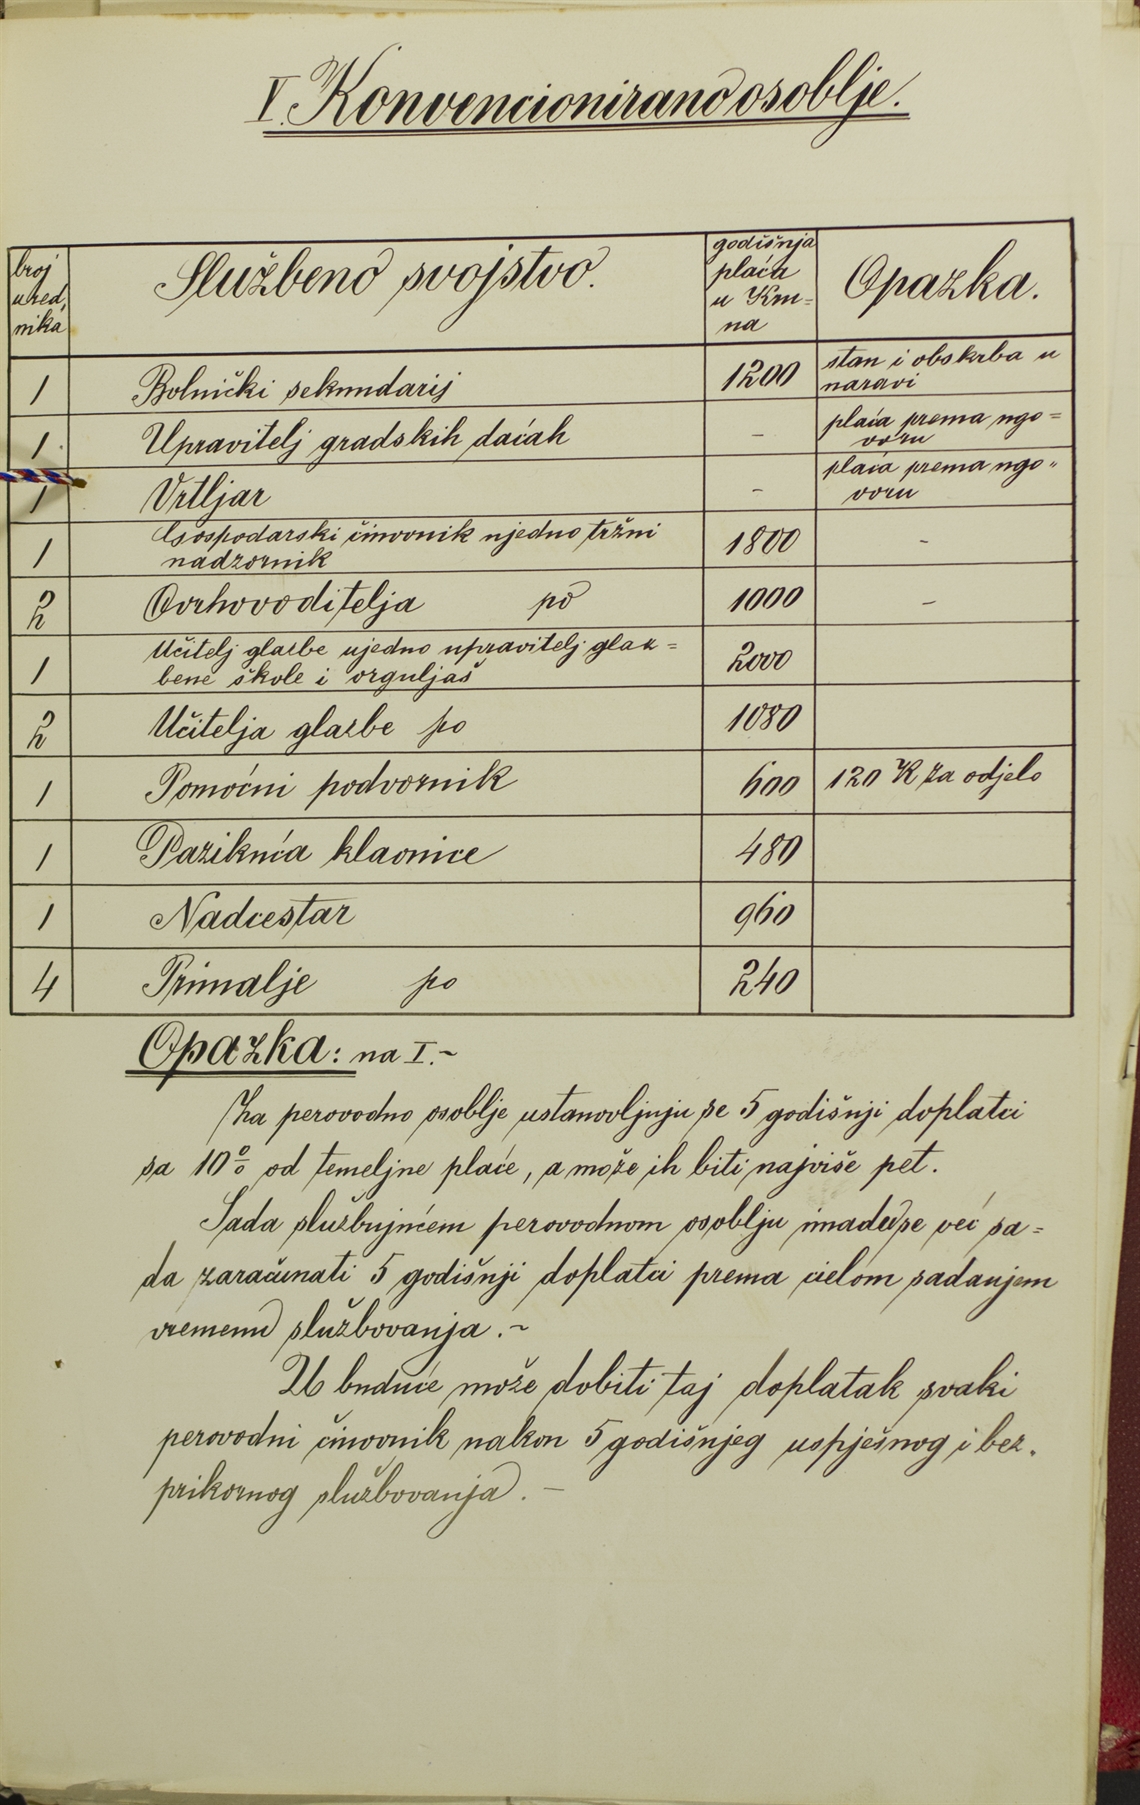 V. Konvencionirano osoblje.
broj
ured,
nika
Službeno svojstvo.
godišnja
plaća
u Kru=
na
Opazka.
1 Bolnički sekundarij 1200 stan i obskrba u
naravi
1 Upravitelj gradskih daćah – plaća prema ugo=
voru
1 Vrtljar – plaća prema ugo„
voru
1 Gospodarski činovnik ujedno tržni
nadzornik 1800 –
2 Ovrhovoditelja po 1000 –
1 Učitelj glasbe ujedno upravitelj glaz=
bene škole i orguljaš 2000
2 Učitelja glasbe po 1080
1 Pomoćni podvornik 600 120 K za odjelo
1 Pazikuća klaonice 480
1 Nadcestar 960
4 Primalje po 240
Opazka: na I.~
Za perovodno osoblje ustanovljuju se 5 godišnji doplatci
sa 10% od temeljne plaće, a može ih biti najviše pet.
Sada službujućem perovodnom osoblju imade se već sa=
da zaračunati 5 godišnji doplatci prema cielom sadanjem
vremenu službovanja.~
U buduće može dobiti taj doplatak svaki
perovodni činovnik nakon 5 godišnjeg uspješnog i bez„
prikornog službovanja. –